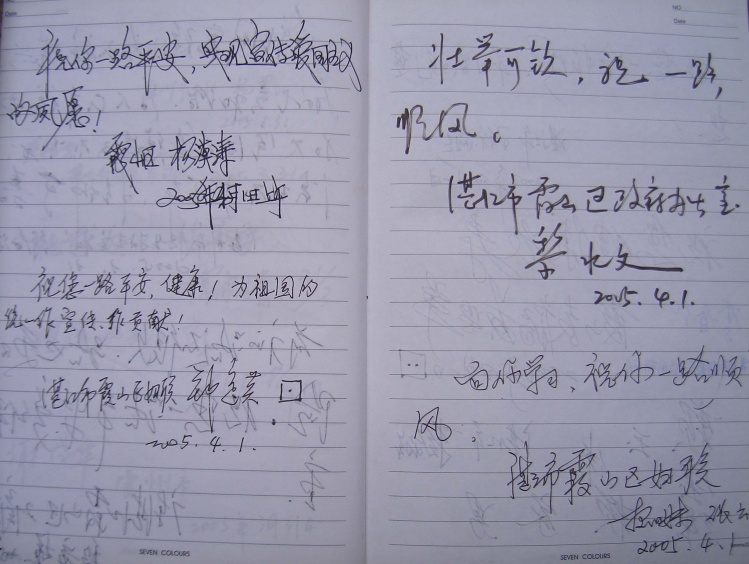 祝你一路平安,实现宣传爱国
的夙愿!
霞山区
祝您一路平安,健康!为祖国的
统一作宣传、作贡献!
湛江市霞山区妇联
2005.4.1.
SEVEN COLOURS
NO.
Date
壮举可钦,祝一路
顺风。
湛江市霞山区政府办公室
2005.4.1.
向你学习、祝你一路顺
风.
湛江市霞山区妇联
2005.4.1
SEVEN COLOURS